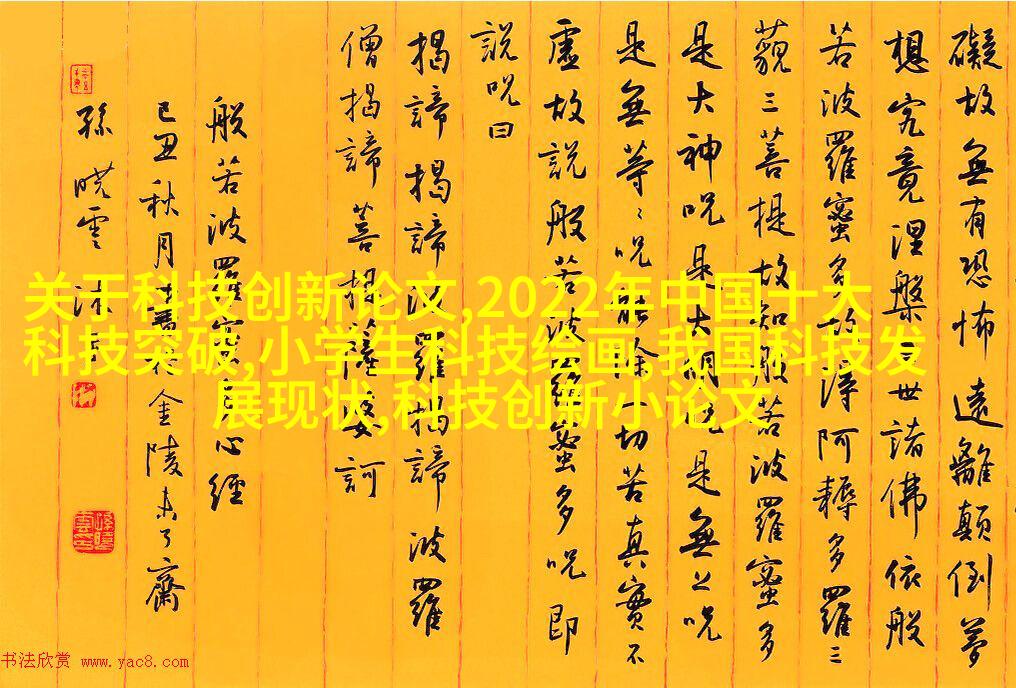 礙故無有恐怖遠離顛倒夢
想究竟涅槃三世諸佛依般
若波羅蜜多故得阿耨多羅三
藐三菩提故知般若波羅蜜多
是大神呪是大明呪是無上呪
是無等〻呪能除一切苦真實不
虛故說般若波羅蜜多呪即
說呪曰
揭諦揭諦波羅揭諦波羅
僧揭諦菩提薩婆訶
般若波羅蜜多心經
己丑秋月書於金陵未了齋
孫晓雲沐手
关于科技创新论文,2022年中国十大
科技突破,小学生科技绘画,我国科技发
展现状,科技创新小论文
书法欣赏 www.yac8.com